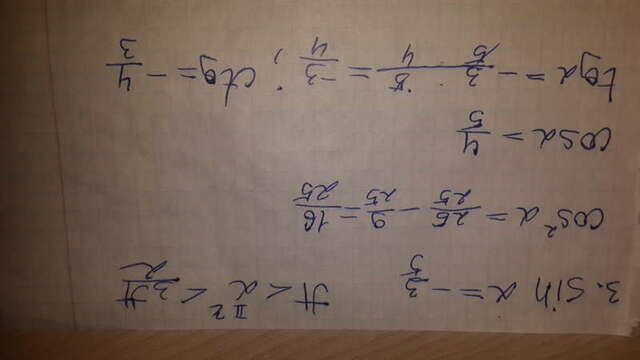 3. sin α = -3/5 π < α < 3π/2
cos² α = 25/25 - 9/25 = 16/25
cos α = 4/5
tg α = -3/5 · 5/4 = -3/4; ctg = -4/3